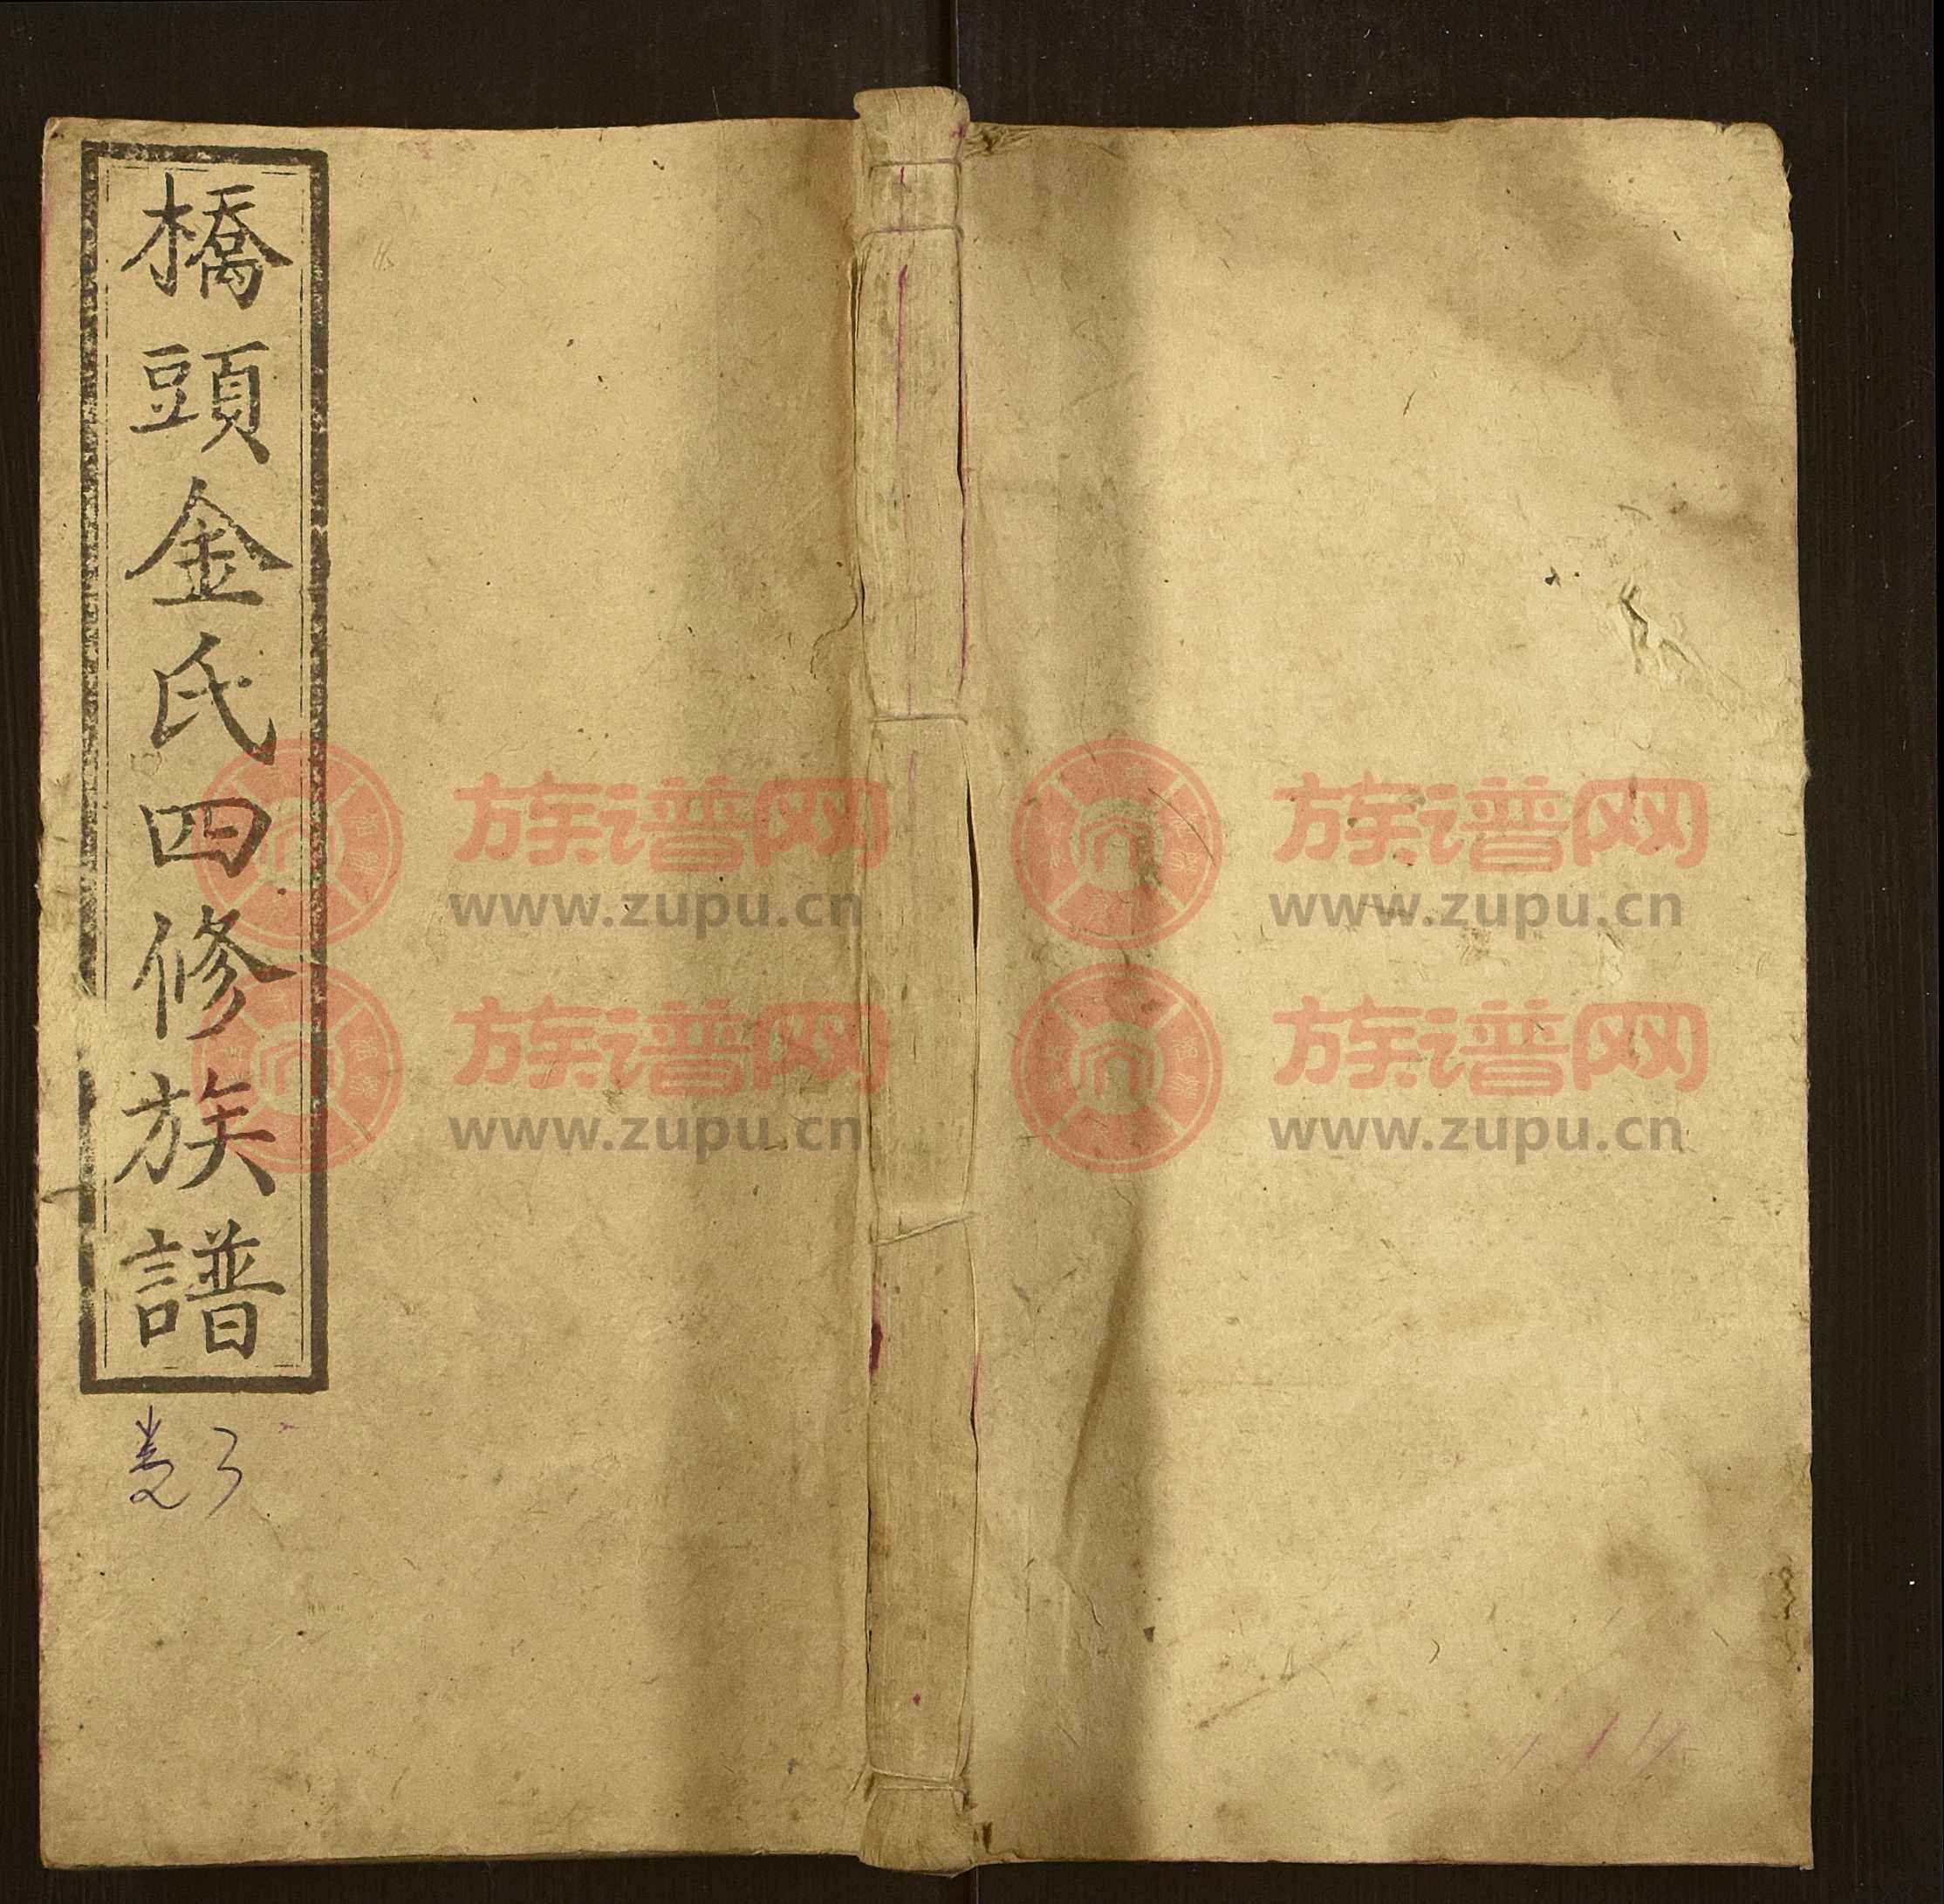 橋頭金氏四修族譜
卷3
族谱网
www.zupu.cn
族谱网
www.zupu.cn
族谱网
www.zupu.cn
族谱网
www.zupu.cn